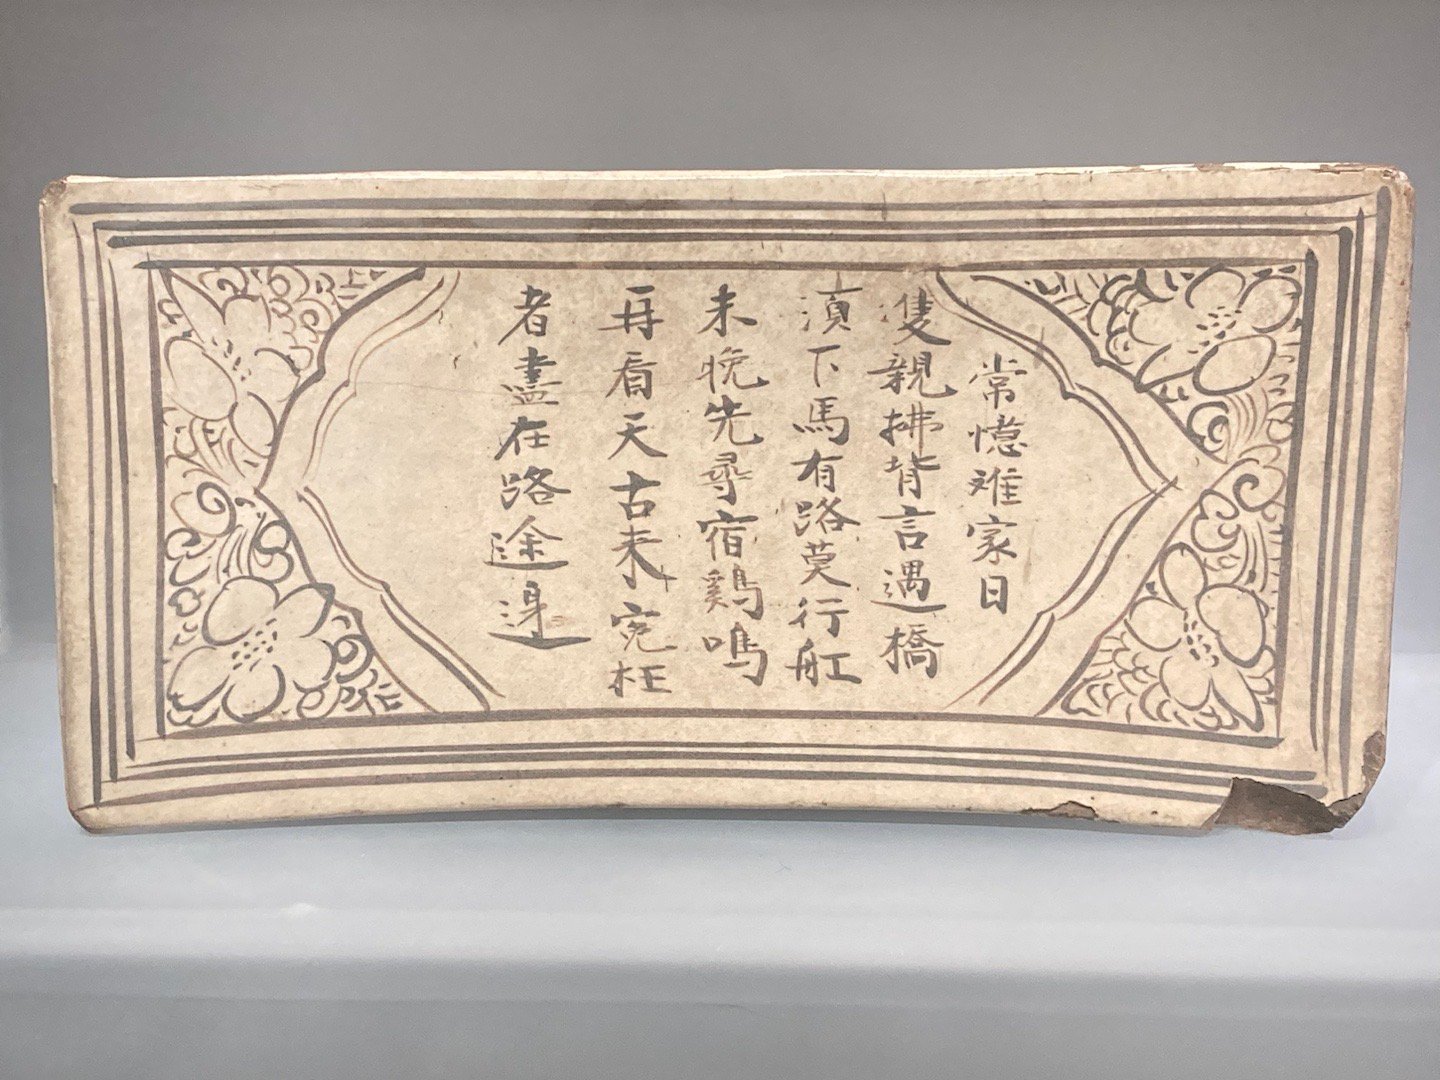 常憶離家日
雙親拂背言遇橋
須下馬有路莫行舡
未晚先尋宿鷄鳴
再看天古来寃枉
者盡在路途邊